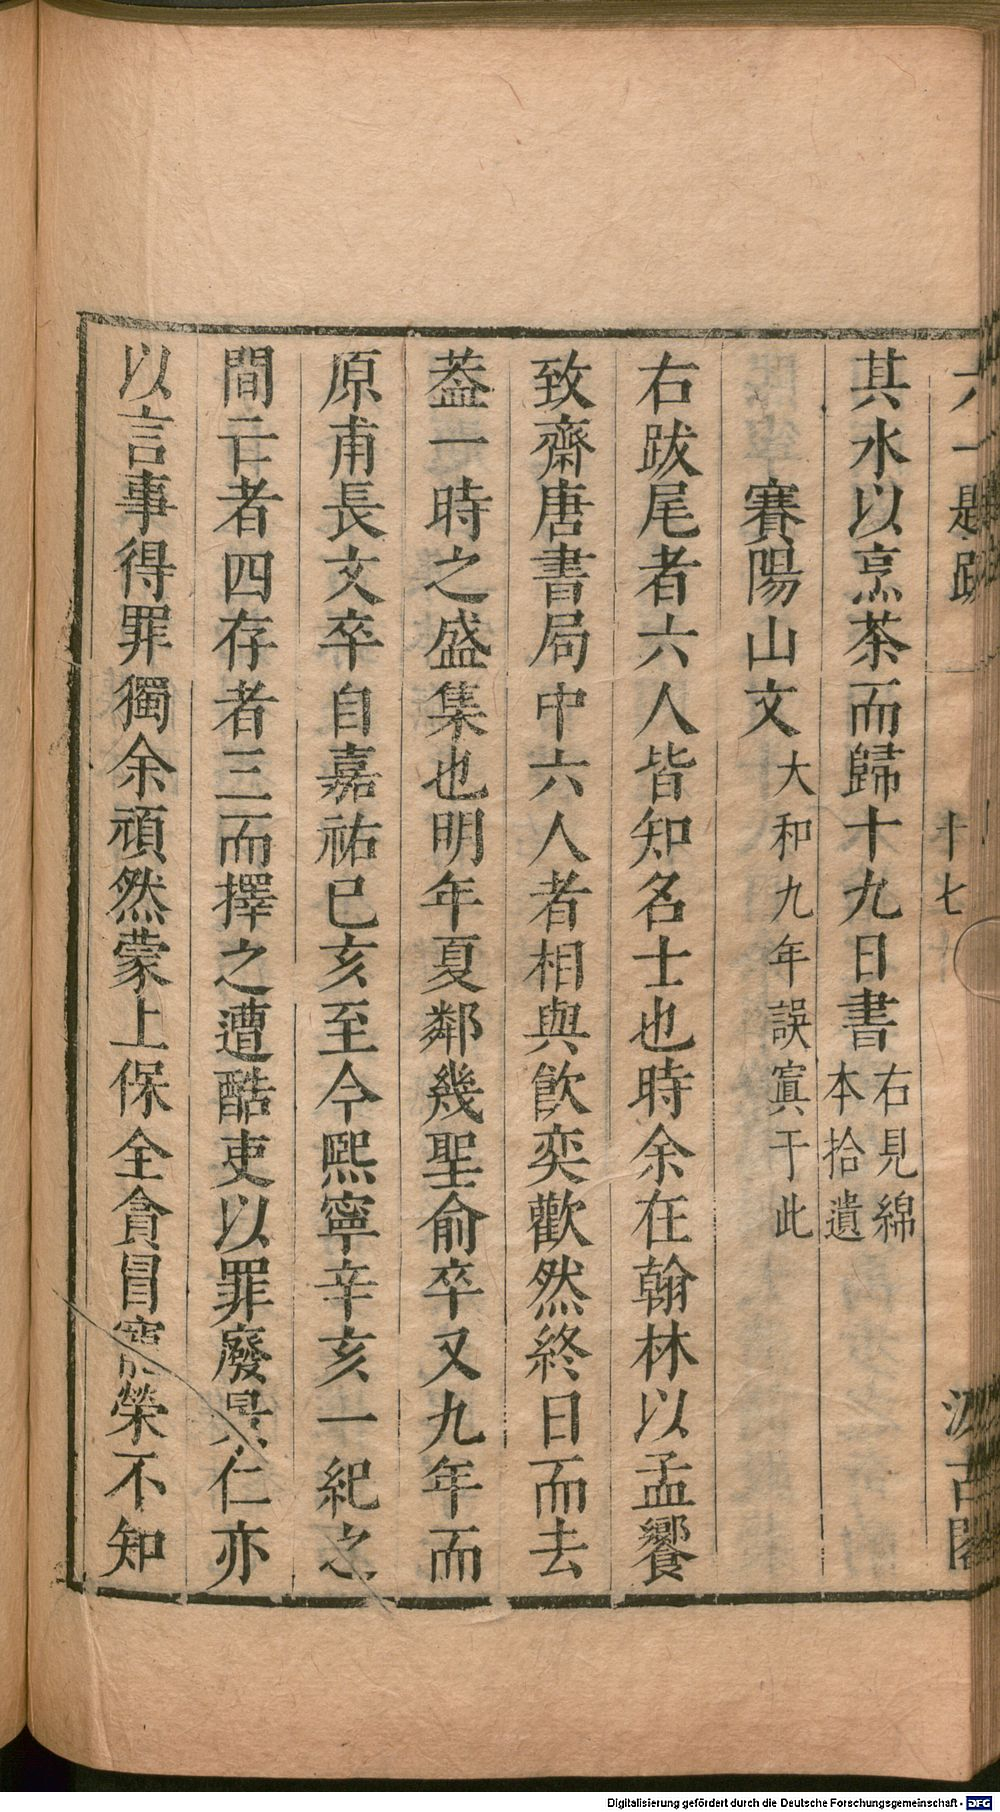 六一題跋 十七 汲古閣
其水以烹茶而歸十九日書右見綿本拾遺
賽陽山文大和九年誤寘于此
右跋尾者六人皆知名士也時余在翰林以孟饗
致齋唐書局中六人者相與飲奕歡然終日而去
葢一時之盛集也明年夏鄰幾聖俞卒又九年而
原甫長文卒自嘉祐已亥至今熙寧辛亥一紀之
間亡者四存者三而擇之遭酷吏以罪廢景仁亦
以言事得罪獨余頑然蒙上保全貪冒寵榮不知
Digitalisierung gefördert durch die Deutsche Forschungsgemeinschaft - DFG